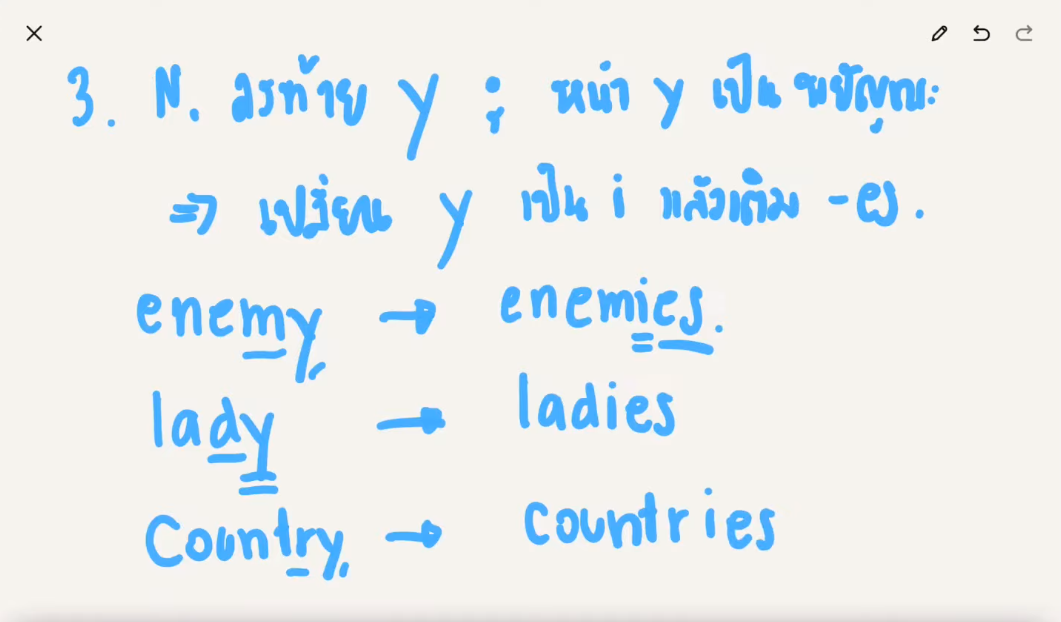 3. N. ลงท้าย y ; หน้า y เป็น พยัญชนะ
⇒ เปลี่ยน y เป็น i แล้วเติม -es.
enemy → enemies.
lady → ladies
Country → countries